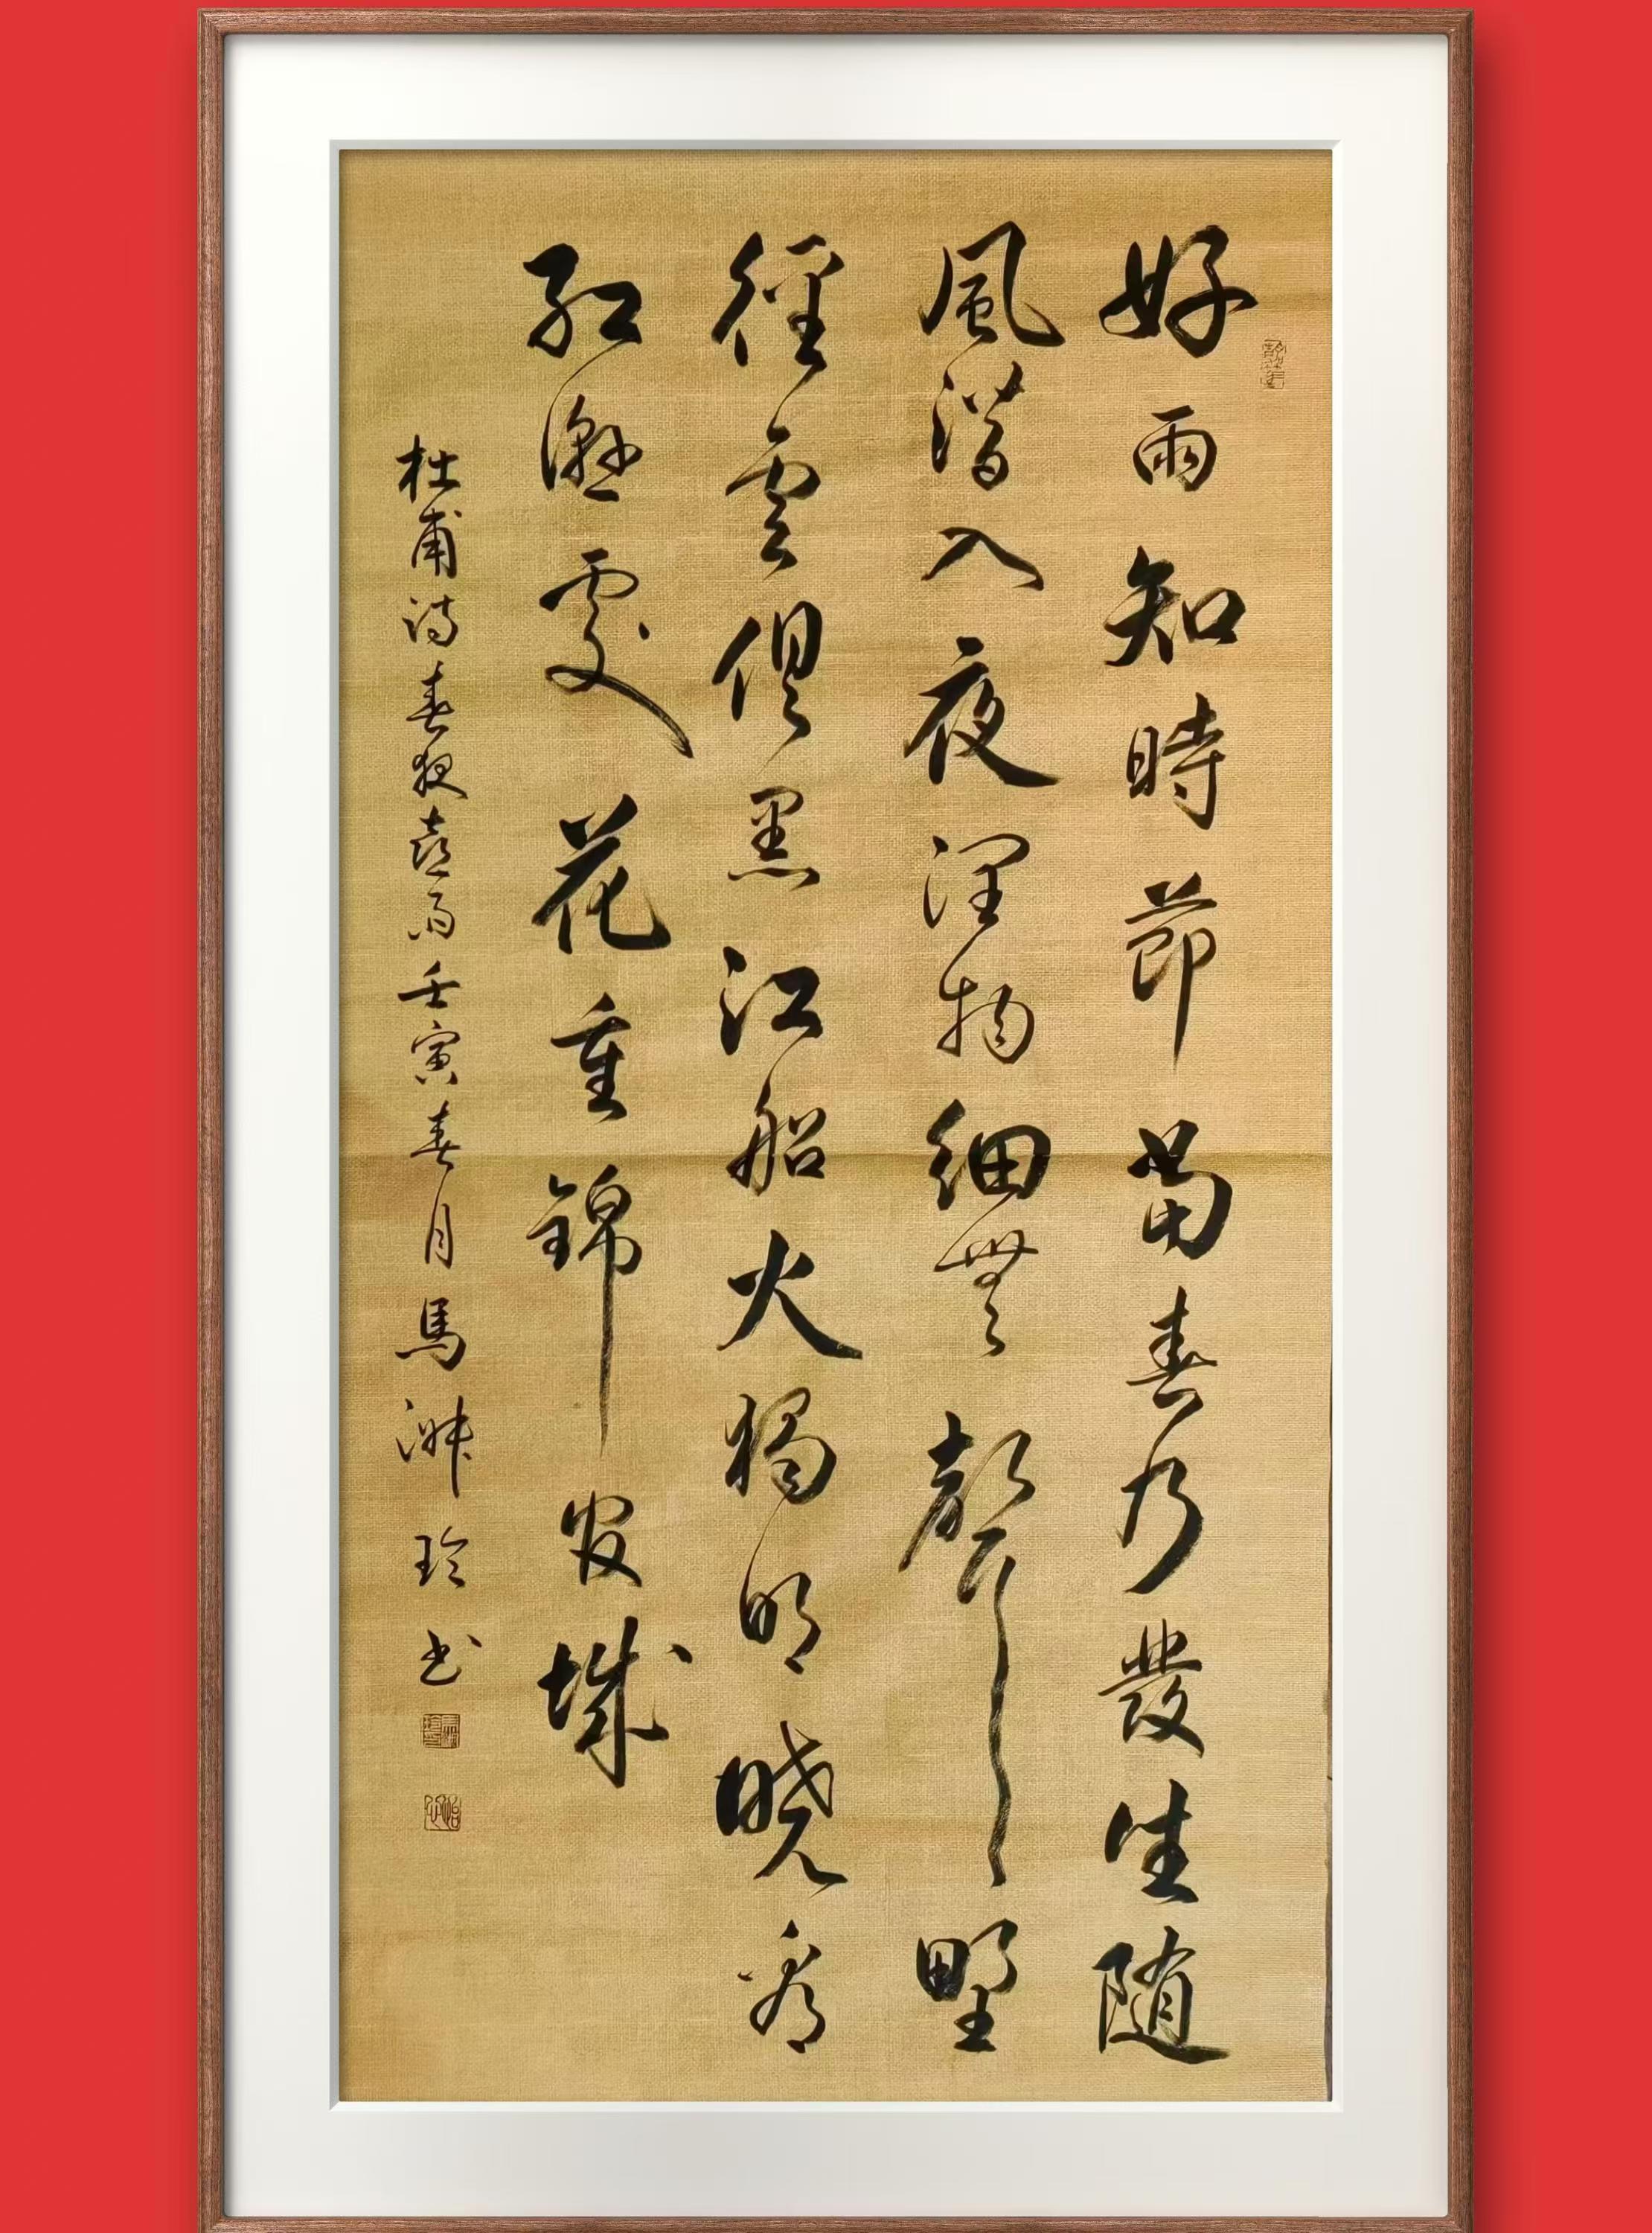 好雨知時節當春乃發生随
風潛入夜潤物細無聲野
徑雲俱黑江船火獨明曉看
紅濕處花重錦官城
杜甫詩春夜喜雨壬寅春月馬淑玲书